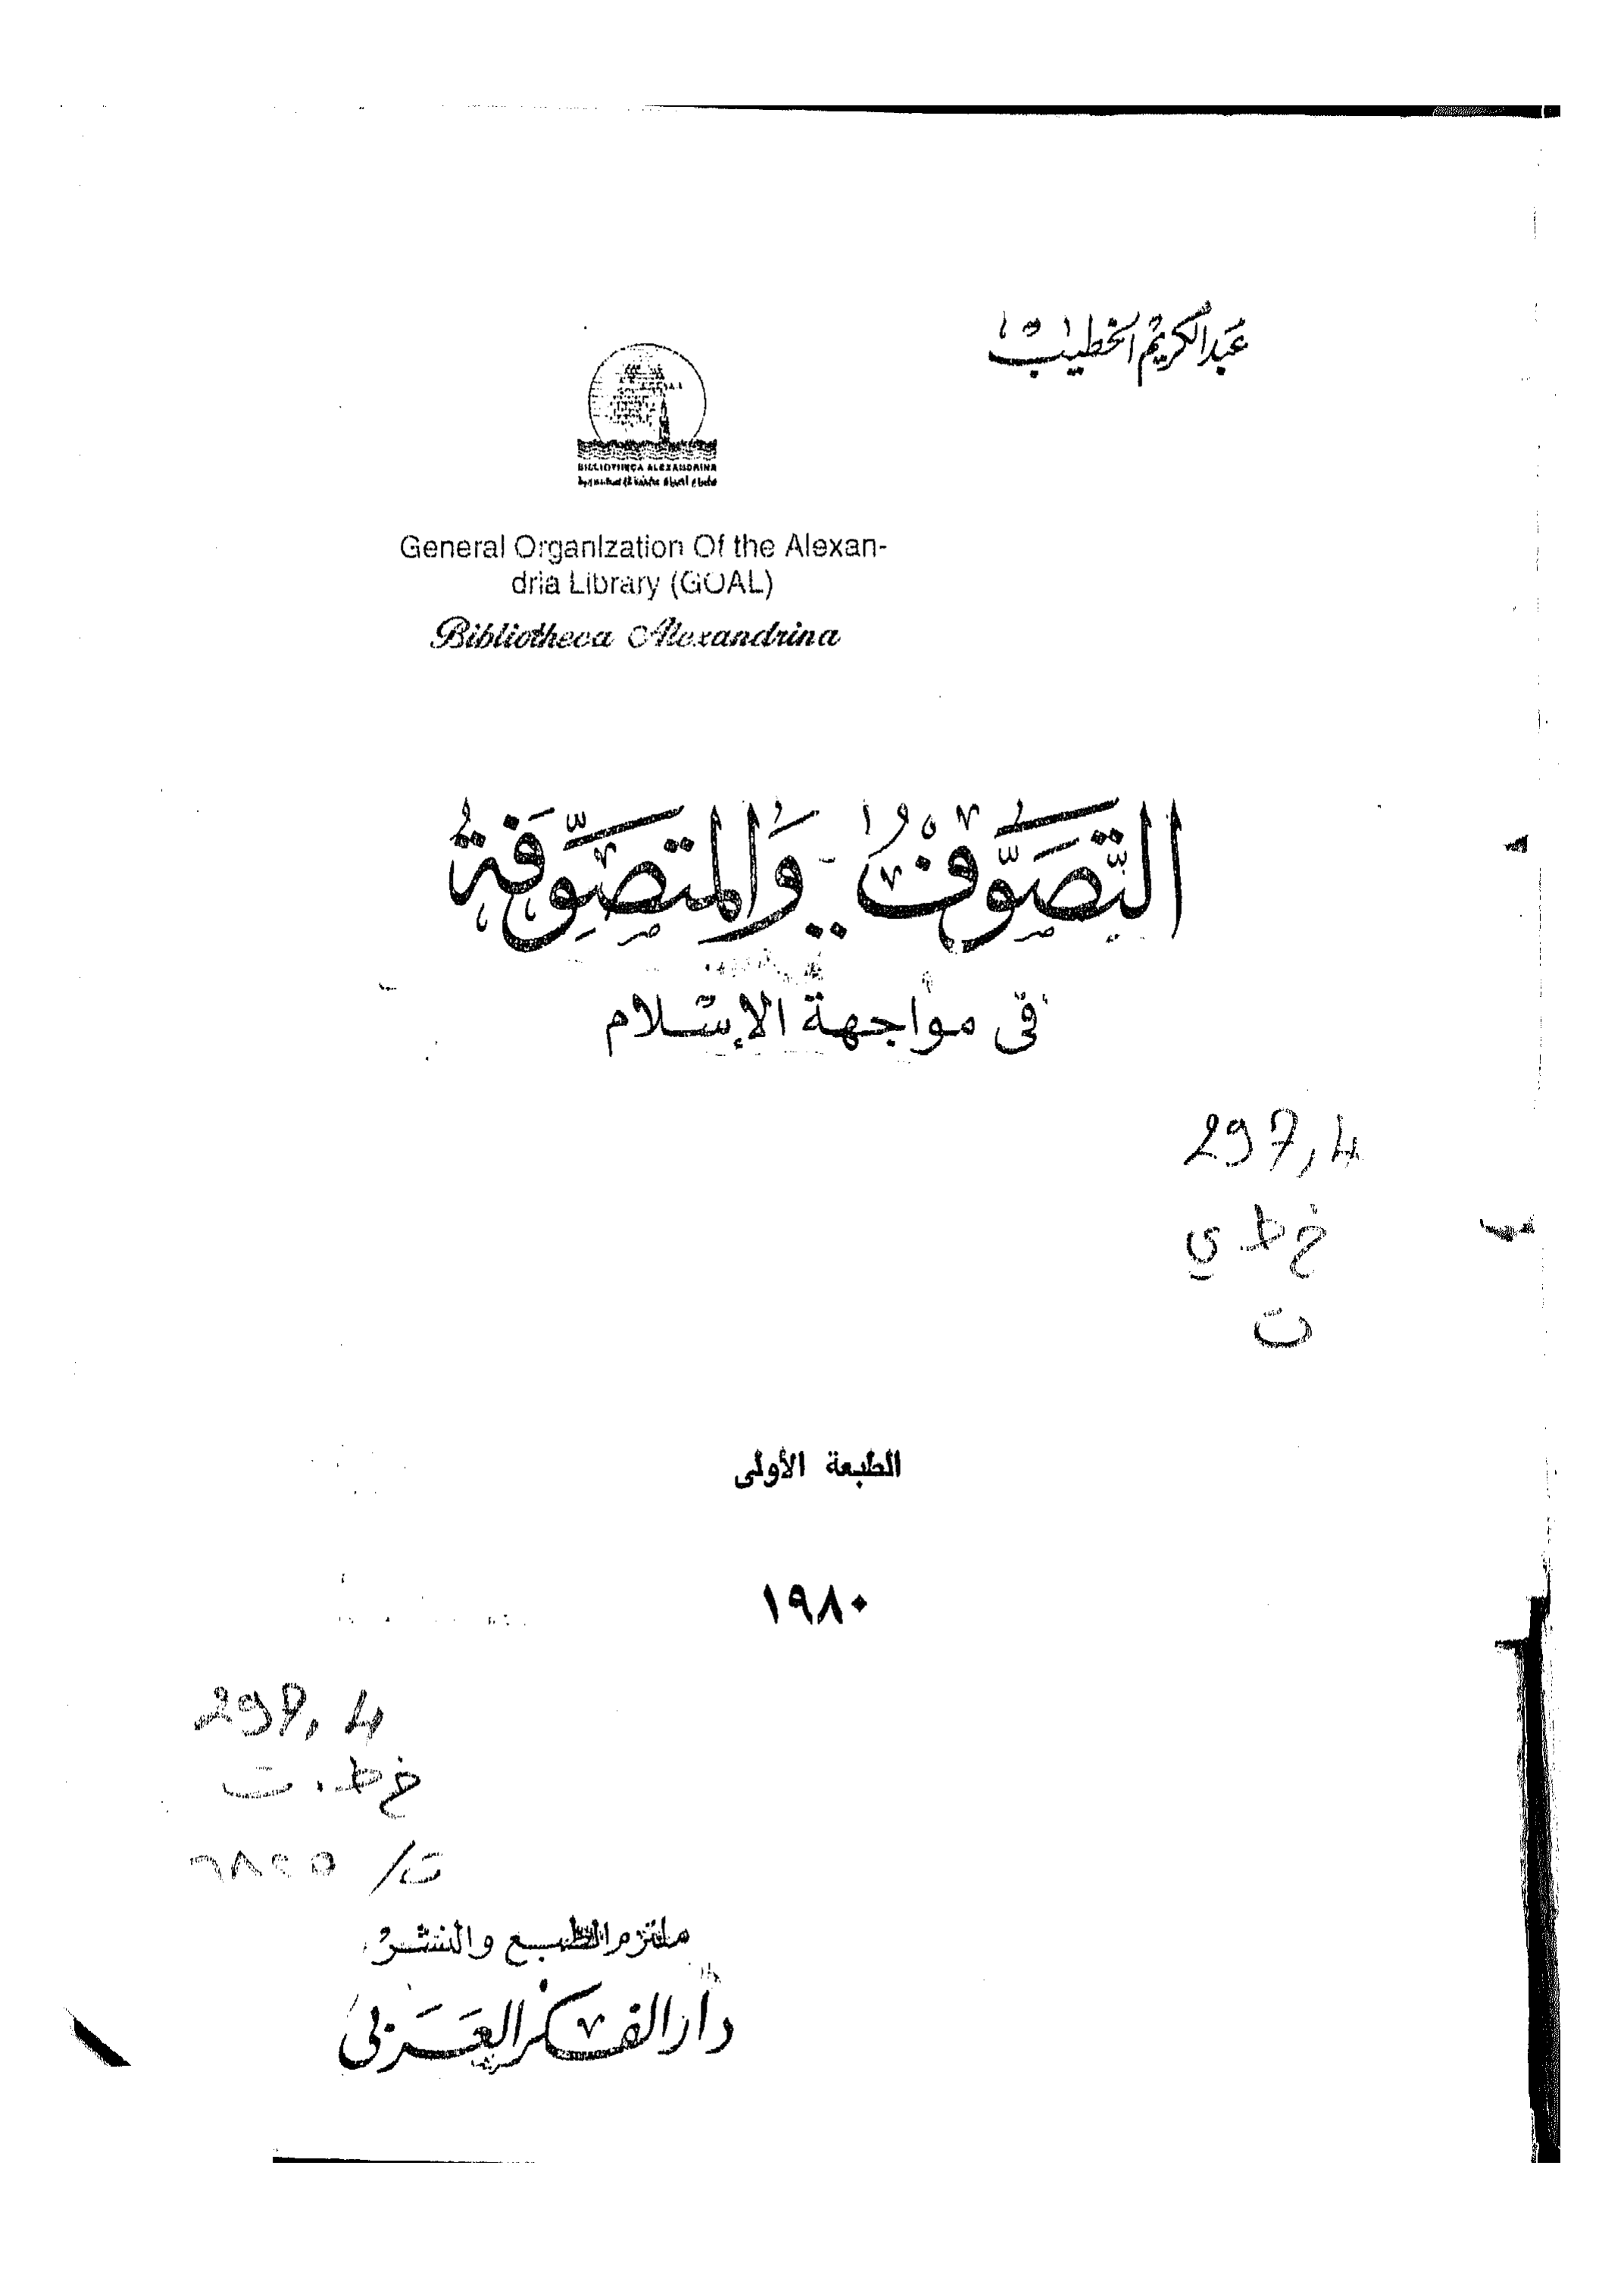 عبد الكريم الخطيب
BIBLIOTHECA ALEXANDRINA
General Organization Of the Alexan-
dria Library (GOAL)
Bibliotheca Alexandrina
التَّصَوُّفُ .. وَالمتصَوِّفَةُ
فى مواجهة الإسلام
297,4
خ ط ي
ت
الطبعة الأولى
١٩٨٠
297,4
خ ط . ت
ت/
ملتزم الطبع والنشر
دار الفكر العربى